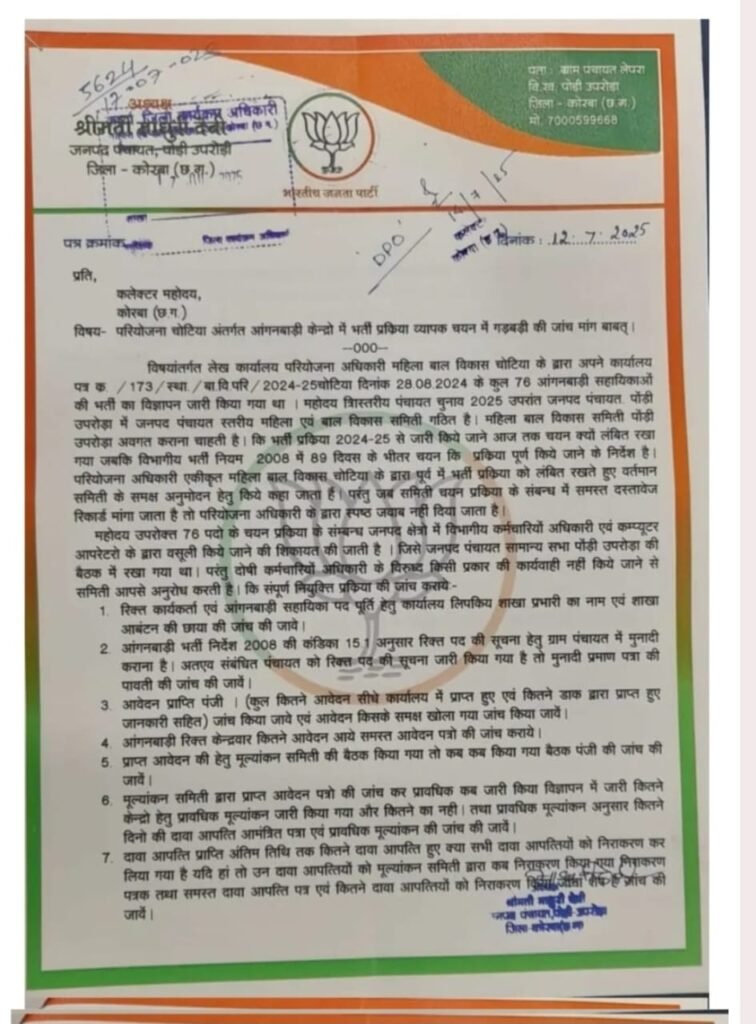 5624
17-07-025
पता : ग्राम पंचायत लेपरा
वि.ख. पोड़ी उपरोड़ा
जिला - कोरबा (छ.ग.)
मो. 7000599668
अध्यक्ष
जिला कार्यक्रम अधिकारी
श्रीमती माधुरी देवी
जनपद पंचायत, पोंड़ी उपरोड़ा
जिला - कोरबा (छ.ग.)
भारतीय जनता पार्टी
DPO
14/7/25
पत्र क्रमांक
दिनांक : 12.7.2025
प्रति,
कलेक्टर महोदय,
कोरबा (छ.ग.)
विषय- परियोजना चोटिया अंतर्गत आंगनबाड़ी केन्द्रो में भर्ती प्रकिया व्यापक चयन में गड़बड़ी की जांच मांग बाबत्।
--000--
विषयांतर्गत लेख कार्यालय परियोजना अधिकारी महिला बाल विकास चोटिया के द्वारा अपने कार्यालय
पत्र क. /173/स्था./बा.वि.परि/2024-25चोटिया दिनांक 28.08.2024 के कुल 76 आंगनबाड़ी सहायिकाओं
की भर्ती का विज्ञापन जारी किया गया था । महोदय त्रिास्तरीय पंचायत चुनाव 2025 उपरांत जनपद पंचायत पोंड़ी
उपरोड़ा में जनपद पंचायत स्तरीय महिला एवं बाल विकास समिती गठित है। महिला बाल विकास समिती पोंड़ी
उपरोड़ा अवगत कराना चाहती है। कि भर्ती प्रकिया 2024-25 से जारी किये जाने आज तक चयन क्यों लंबित रखा
गया जबकि विभागीय भर्ती नियम 2008 में 89 दिवस के भीतर चयन कि प्रकिया पूर्ण किये जाने के निर्देश है।
परियोजना अधिकारी एकीकृत महिला बाल विकास चोटिया के द्वारा पूर्व में भर्ती प्रकिया को लंबित रखते हुए वर्तमान
समिती के समक्ष अनुमोदन हेतु किये कहा जाता हैं। परंतु जब समिती चयन प्रकिया के संबन्ध में समस्त दस्तावेज
रिकार्ड मांगा जाता है तो परियोजना अधिकारी के द्वारा स्पष्ठ जवाब नही दिया जाता है।
महोदय उपरोक्त 76 पदो के चयन प्रकिया के संबन्ध जनपद क्षेत्रो में विभागीय कर्मचारियों अधिकारी एवं कम्प्यूटर
आपरेटरो के द्वारा वसूली किये जाने की शिकायत की जाती है । जिसे जनपद पंचायत सामान्य सभा पोंड़ी उपरोड़ा की
बैठक में रखा गया था। परंतु दोषी कर्मचारियों अधिकारी के विरुध्द किसी प्रकार की कार्यवाही नहीं किये जाने से
समिती आपसे अनुरोध करती है। कि संपूर्ण नियुक्ति प्रकिया की जांच कराये:-
1. रिक्त कार्यकर्ता एवं आंगनबाड़ी सहायिका पद पूर्ति हेतु कार्यालय लिपकिय शाखा प्रभारी का नाम एवं शाखा
आबंटन की छाया की जांच की जावे।
2. आंगनबाड़ी भर्ती निर्देश 2008 की कंडिका 15.1 अनुसार रिक्त पद की सूचना हेतु ग्राम पंचायत में मुनादी
कराना है। अतएव संबंधित पंचायत को रिक्त पद की सूचना जारी किया गया है तो मुनादी प्रमाण पत्रा की
पावती की जांच की जावें।
3. आवेदन प्राप्ति पंजी । (कुल कितने आवेदन सीधे कार्यालय में प्राप्त हुए एवं कितने डाक द्वारा प्राप्त हुए
जानकारी सहित) जांच किया जावे एवं आवेदन किसके समक्ष खोला गया जांच किया जावें।
4. आंगनबाड़ी रिक्त केन्द्रवार कितने आवेदन आये समस्त आवेदन पत्रो की जांच कराये।
5. प्राप्त आवेदन की हेतु मूल्यांकन समिती की बैठक किया गया तो कब कब किया गया बैठक पंजी की जांच की
जावें।
6. मूल्यांकन समिती द्वारा प्राप्त आवेदन पत्रो की जांच कर प्रावधिक कब जारी किया विज्ञापन में जारी कितने
केन्द्रो हेतु प्रावधिक मूल्यांकन जारी किया गया और कितने का नही। तथा प्रावधिक मूल्यांकन अनुसार कितने
दिनो की दावा आपत्ति आमंत्रित पत्रा एवं प्रावधिक मूल्यांकन की जांच की जावें।
7. दावा आपत्ति प्राप्ति अंतिम तिथि तक कितने दावा आपत्ति हुए क्या सभी दावा आपत्तियों को निराकरण कर
लिया गया है यदि हां तो उन दावा आपत्तियों को मूल्यांकन समिती द्वारा कब निराकरण किया गया निराकरण
पत्रक तथा समस्त दावा आपत्ति पत्र एवं कितने दावा आपत्तियों को निराकरण किया जाना शेष है जांच की
जावें।
श्रीमती माधुरी देवी
जनपद पंचायत,पोड़ी उपरोड़ा
जिला-कोरबा(छ.ग)